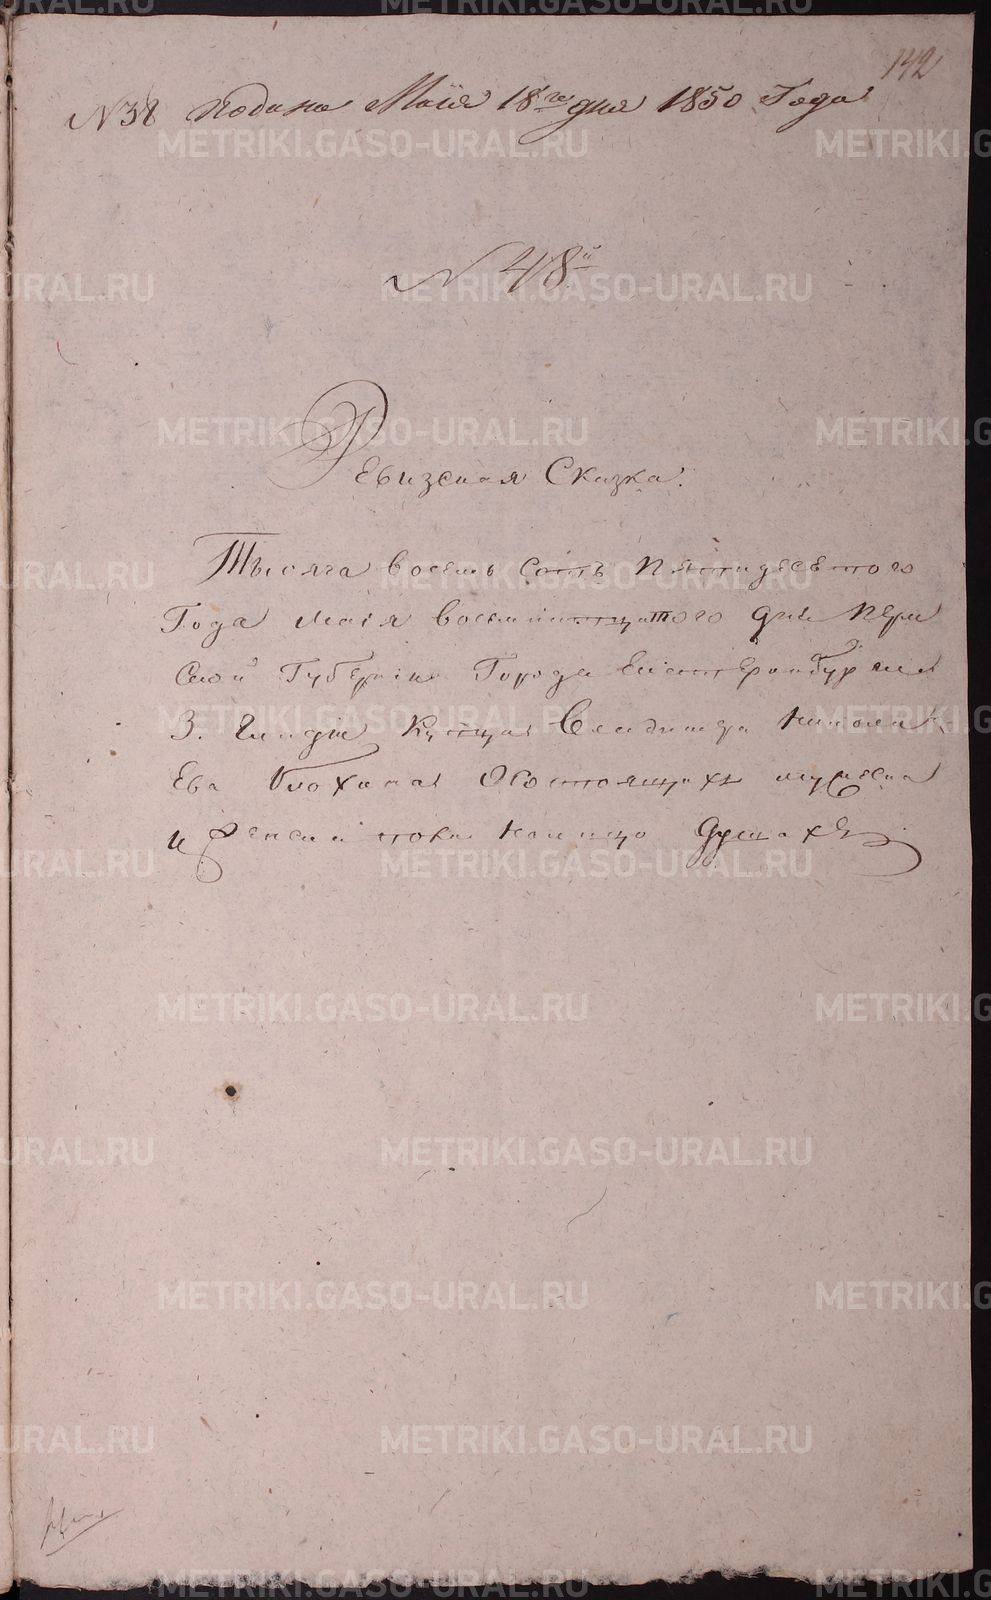 142
N 38 Подана Маія 18го дня 1850 Года
N 48й
Ревизская Сказка.
Тысяча восемь сотъ Пятидесятого
Года маія восемнатцатого дня Перм
ской Губерніи Города Екатеринбурга
3. Гилдіи Купца Владимера Никола
Ева Блохина Осостоящихъ мужеска
и женска пола налицо Душахъ
METRIKI.GASO-URAL.RU